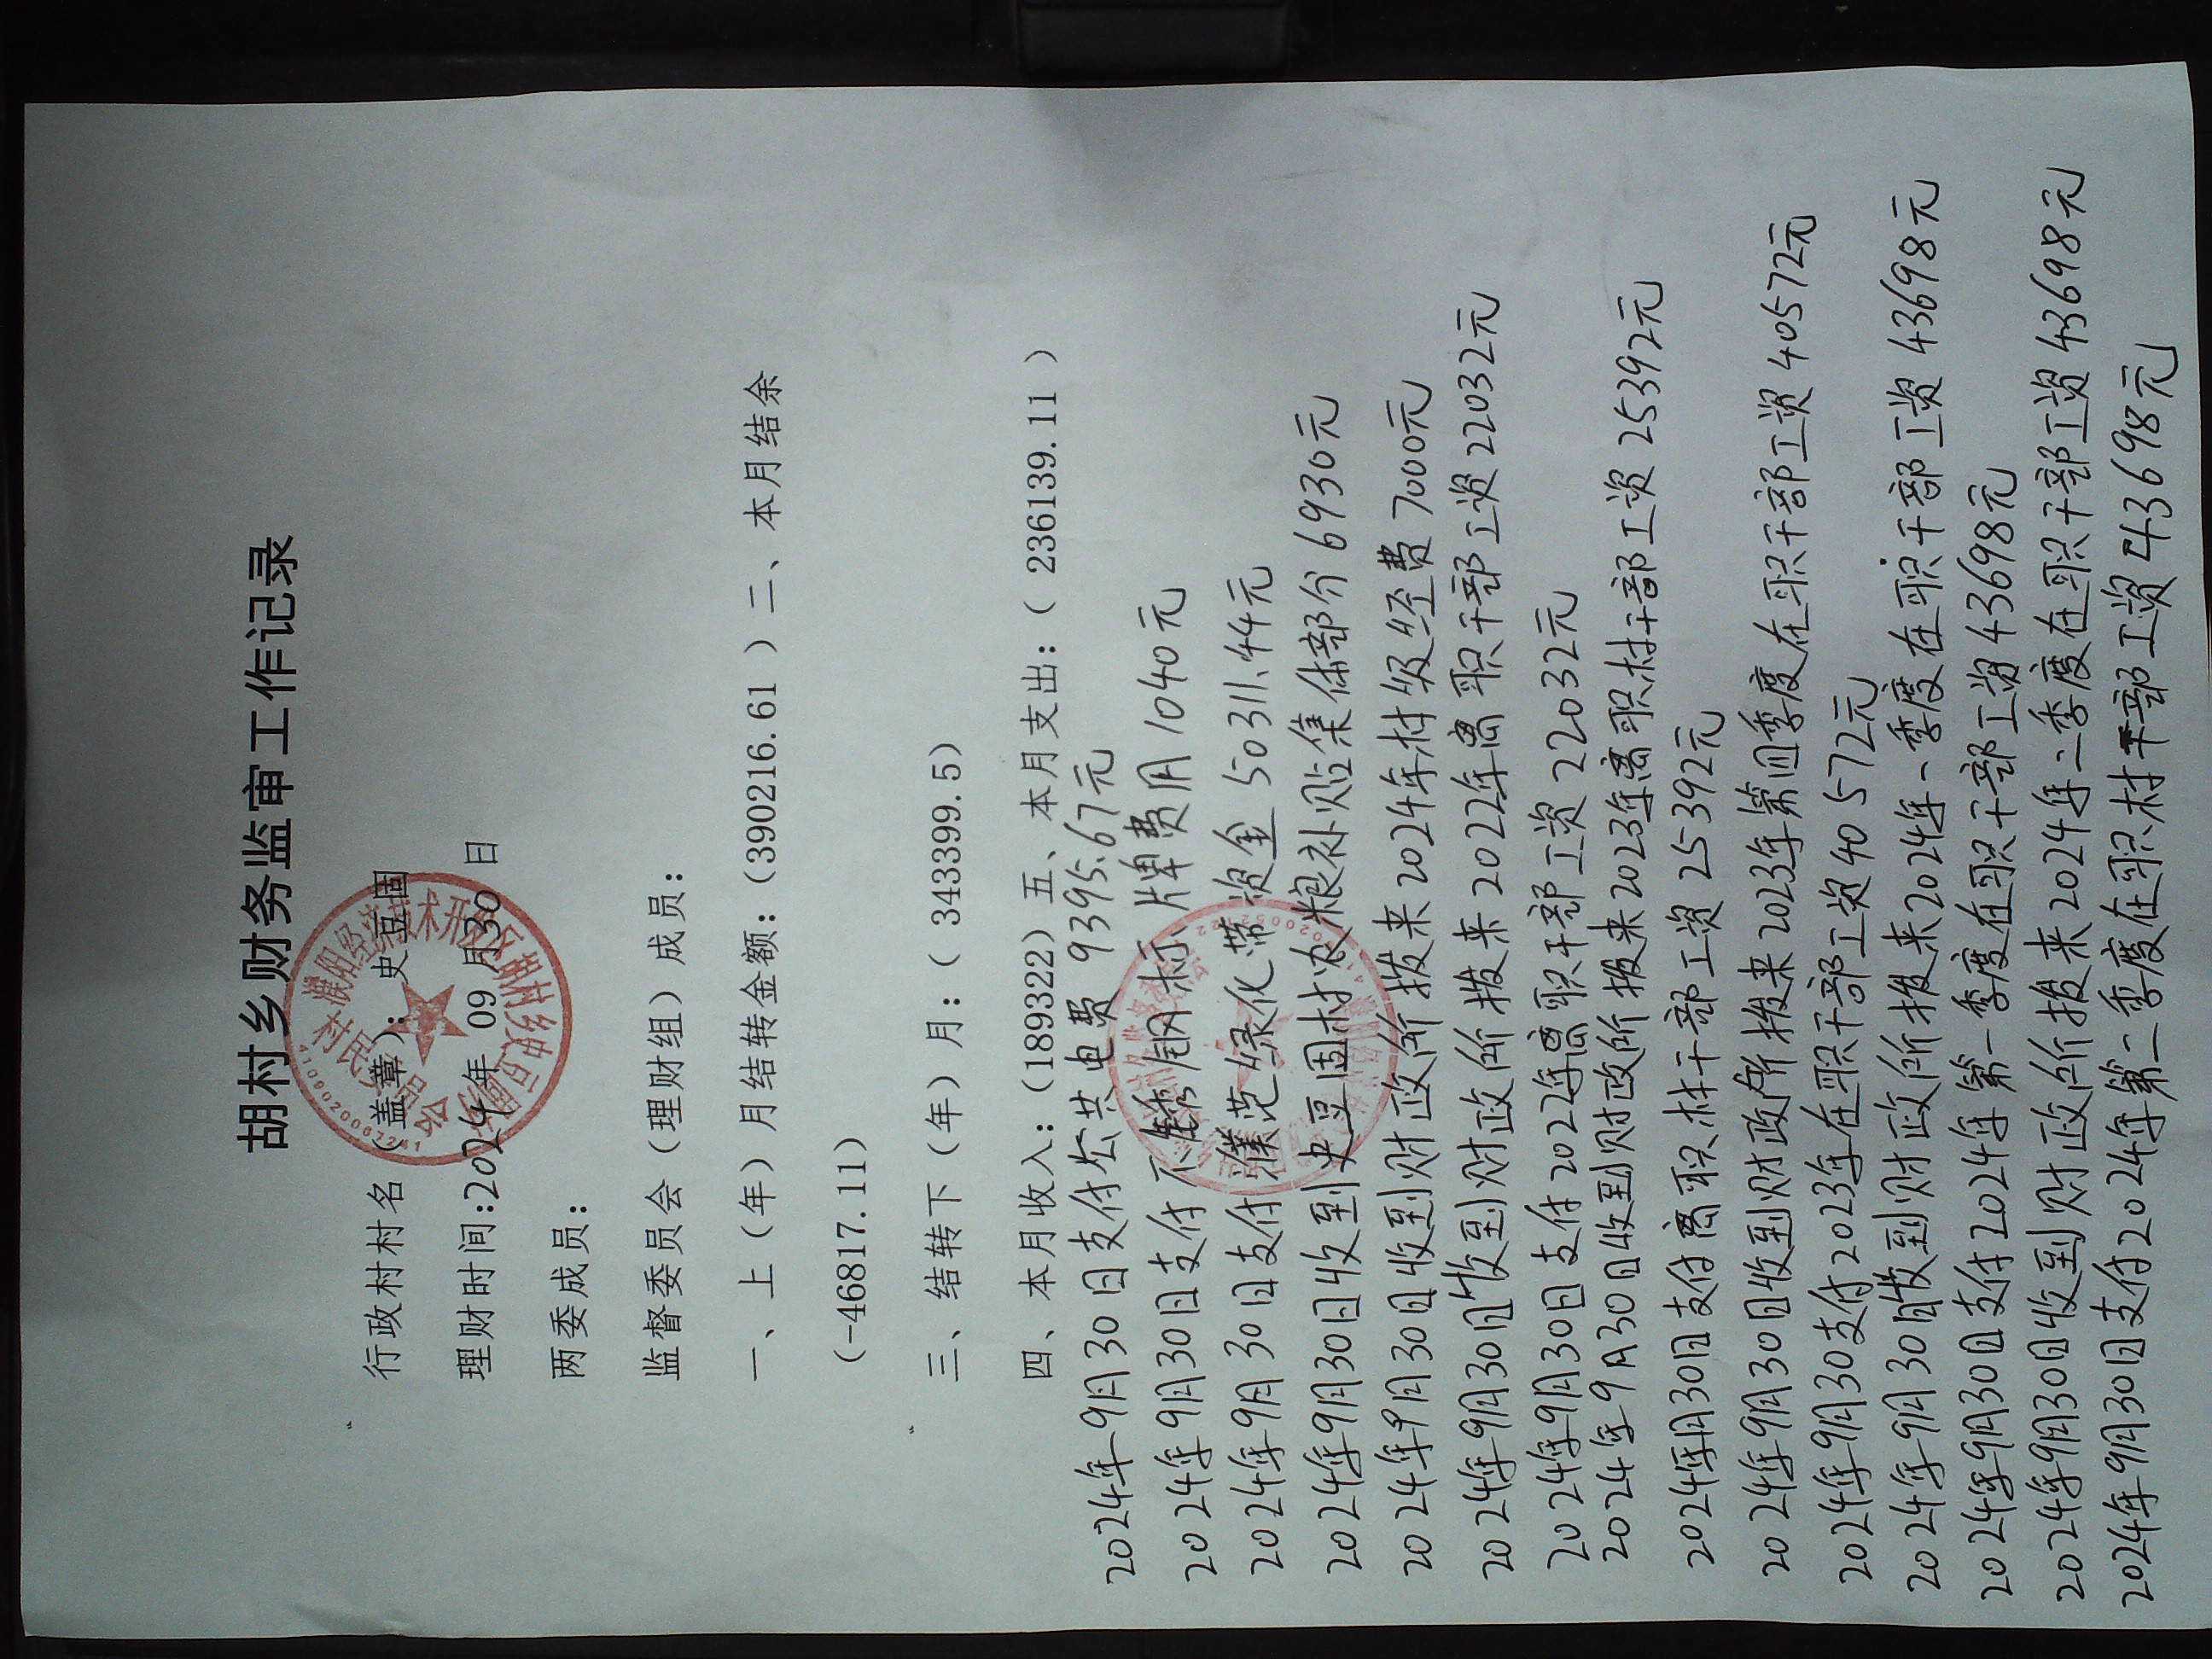 胡村乡财务监审工作记录
行政村村名（盖章）：史豆固
理财时间:2024年 09 月30 日
两委成员：
监督委员会（理财组）成员：
一、上（年）月结转金额：（390216.61 ）二、本月结余
（-46817.11）
三、结转下（年）月：（ 343399.5）
四、本月收入：（189322）五、本月支出：（ 236139.11 ）
2024年9月30日支付公共电费 9395.67元
2024年9月30日支付不锈钢标牌费用1040元
2024年9月30日支付濮范绿化带资金50311.44元
2024年9月30日收到史豆固村农粮补贴集体部分6930元
2024年9月30日收到财政所拨来2024年村级经费7000元
2024年9月30日收到财政所拨来2022年离职干部工资22032元
2024年9月30日支付2022年离职干部工资22032元
2024年9月30日收到财政所拨来2023年离职村干部工资25392元
2024年月30日支付离职村干部工资25392元
2024年9月30日收到财政所拨来2023年第四季度在职干部工资40572元
2024年9月30支付2023年在职干部工资40572元
2024年9月30日收到财政所拨来2024年一季度在职干部工资43698元
2024年9月30日支付2024年第一季度在职干部工资43698元
2024年9月30日收到财政所拨来2024年二季度在职干部工资43698元
2024年9月30日支付2024年第二季度在职村干部工资43698元